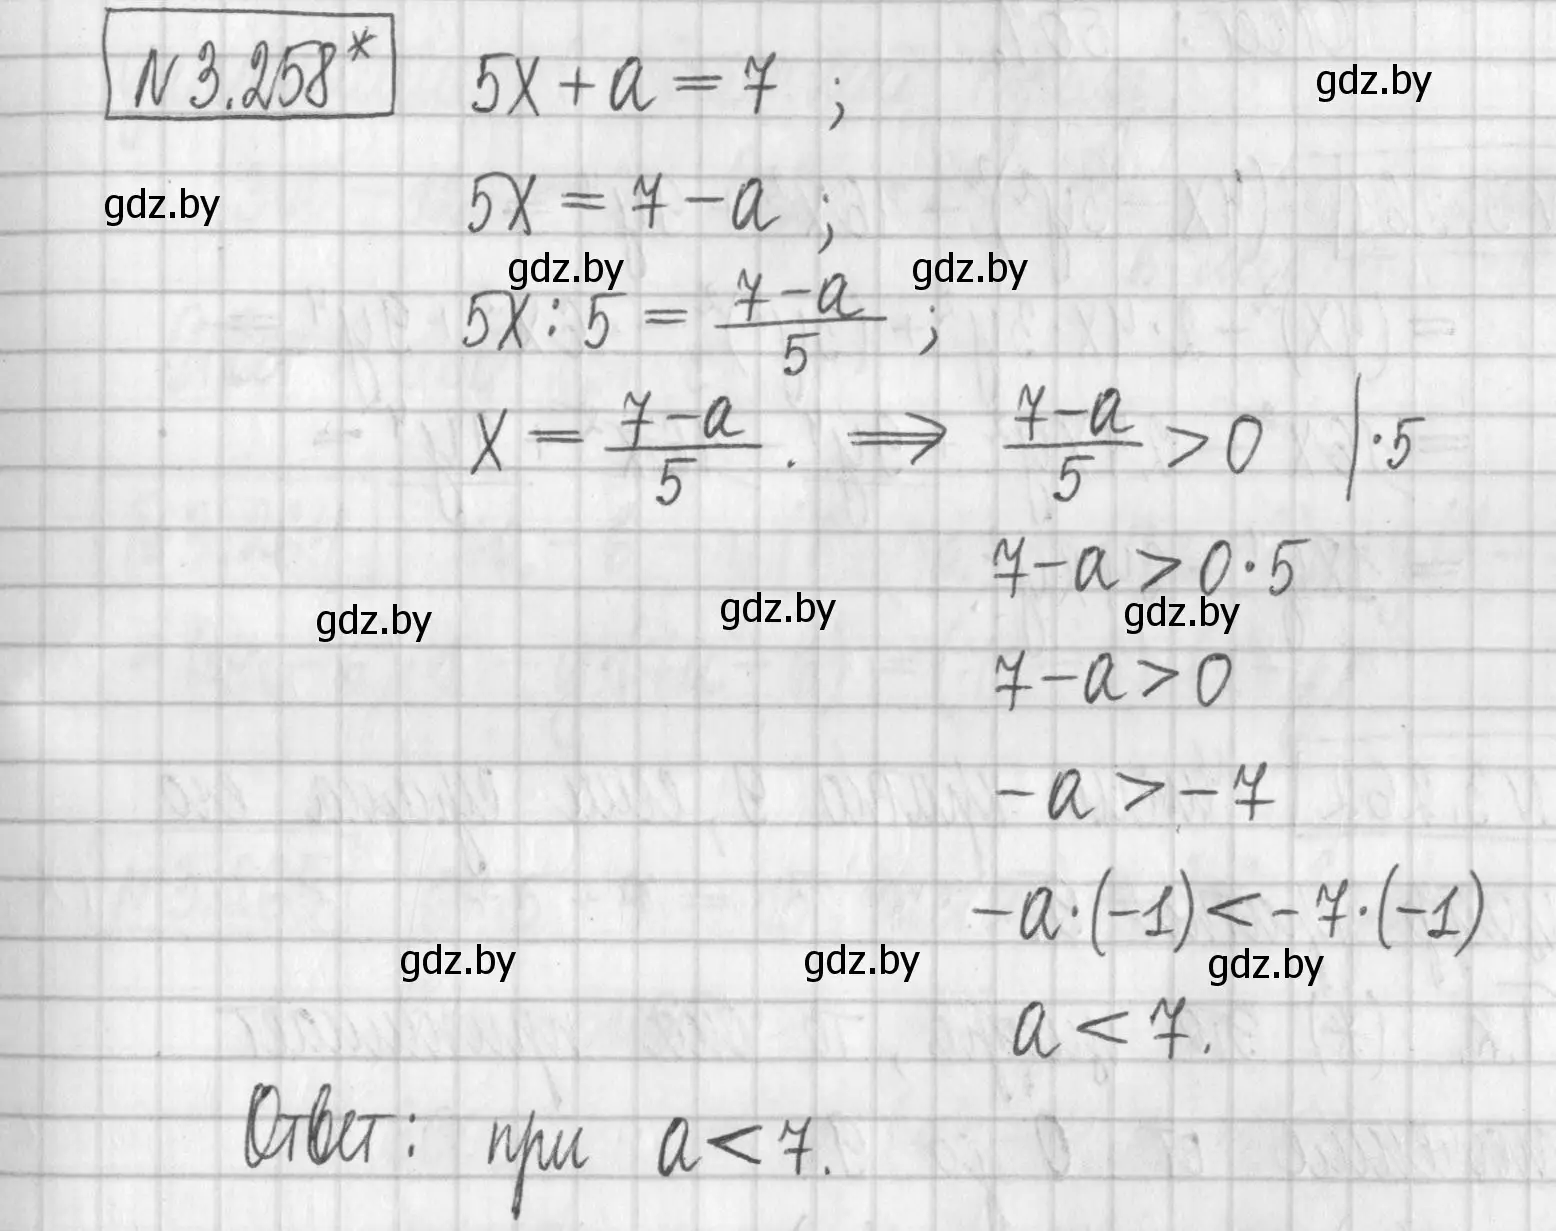 N 3.258* 5x + a = 7 ;
gdz.by
gdz.by
5x = 7 - a ;
gdz.by gdz.by
5x : 5 = (7 - a)/5 ;
x = (7 - a)/5 . ⟹ (7 - a)/5 > 0 | · 5
7 - a > 0 · 5
gdz.by gdz.by gdz.by
7 - a > 0
- a > - 7
- a · (-1) < - 7 · (-1)
gdz.by gdz.by gdz.by
a < 7.
Ответ: при a < 7.